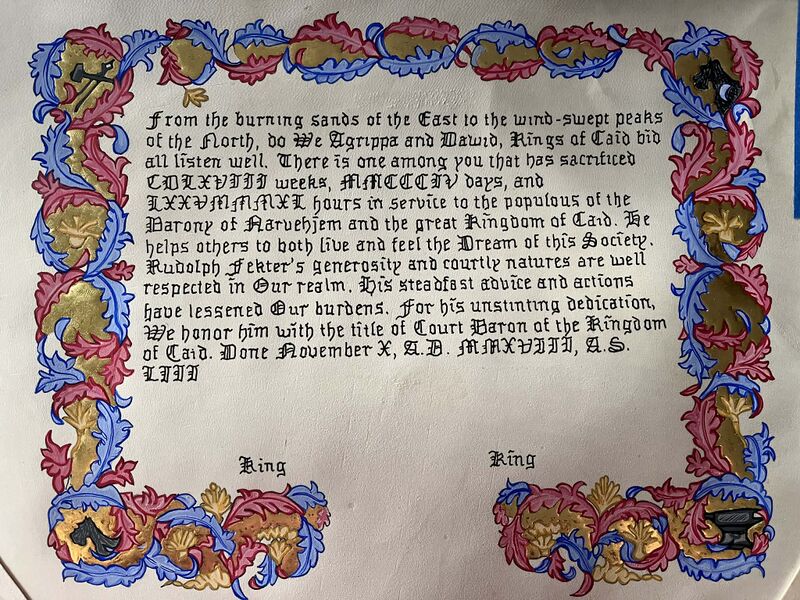 From the burning sands of the East to the wind-swept peaks
of the North, do We Agrippa and Dawid, Kings of Caid bid
all listen well. There is one among you that has sacrificed
CDLXVIII weeks, MMCCCIV days, and
LXXVMMMXL hours in service to the populous of the
Barony of Narvehjem and the great Kingdom of Caid. He
helps others to both live and feel the Dream of this Society.
Rudolph Fekter's generosity and courtly natures are well
respected in Our realm. His steadfast advice and actions
have lessened Our burdens. For his unstinting dedication,
We honor him with the title of Court Baron of the Kingdom
of Caid. Done November X, A.D. MMXVIII, A.S.
LIII
King King